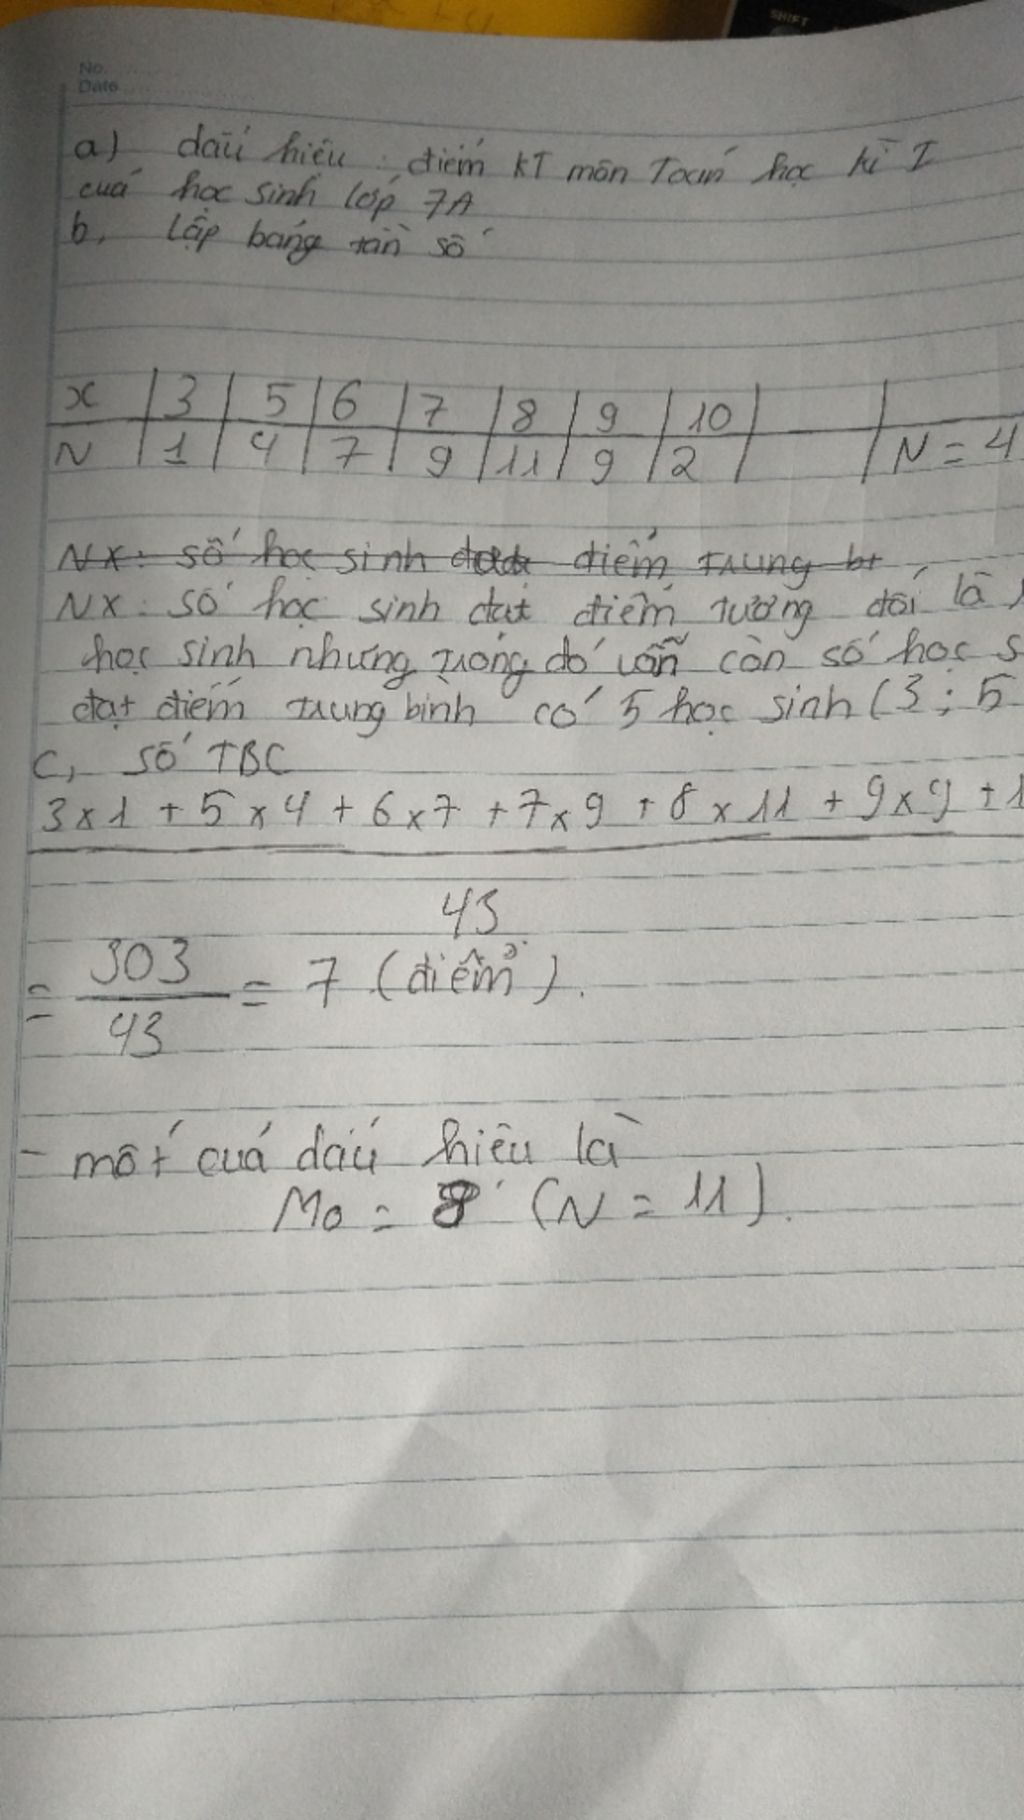 SHIFT
No.
Date
a) dấu hiệu : điểm KT môn Toán học kì I
của học sinh lớp 7A
b, Lập bảng tần số
x | 3 | 5 | 6 | 7 | 8 | 9 | 10 | |
N | 1 | 4 | 7 | 9 | 11 | 9 | 2 | | N = 4
NX: số học sinh điểm trung b
NX: số học sinh đạt điểm tương đối là
học sinh nhưng trong đó vẫn còn số học s
đạt điểm trung bình có 5 học sinh (3; 5
C, số TBC
3x1 + 5x4 + 6x7 + 7x9 + 8x11 + 9x9 + 1
43
= 303/43 = 7 (điểm).
- mốt của dấu hiệu là
Mo = 8 (N = 11).